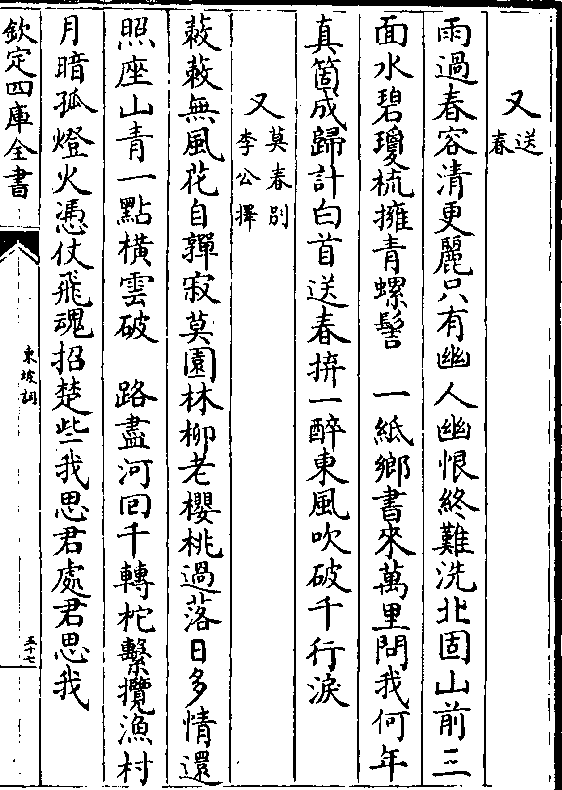 又送春
雨過春容清更麗只有幽人幽恨終難洗北固山前三
面水碧瓊梳擁青螺髻　一紙鄉書來萬里問我何年
真箇成歸計白首送春拚一醉東風吹破千行淚
又莫春別李公擇
蔌蔌無風花自嚲寂莫園林柳老櫻桃過落日多情還
照座山青一點橫雲破　路盡河回千轉柁繫攬漁村
月暗孤燈火憑仗飛魂招楚些我思君處君思我
欽定四庫全書
東坡詞
五十七